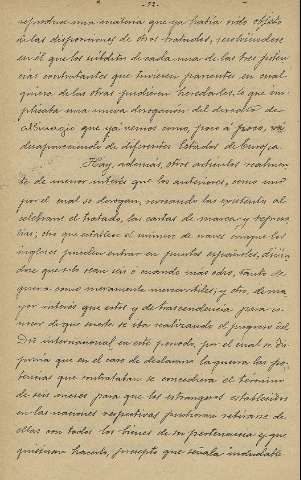 -72-
reproduce una materia que ya había sido objeto
de las disposiciones de otros tratados, resolviéndose
en él que los súbditos de cada una de las tres poten-
cias contratantes que tuviesen parientes en cual-
quiera de las otras pudieran heredarles, lo que im-
plicaba una nueva derogación del derecho de
albinagio que ya vemos como, poco á poco, va
desapareciendo de diferentes Estados de Europa.
Hay, además, otros artículos realmen-
te de menor interés que los anteriores, como uno
por el cual se derogan, revocando las existentes al
celebrarse el tratado, las cartas de marca y represa-
lias; otro que establece el número de naves con que los
ingleses pueden entrar en puertos españoles,
doce que solo sean seis ó cuando más ocho, tanto de
guerra como meramente mercantiles; y otro, de ma-
yor interés que estos y de trascendencia para co-
nocer de que suerte se iba realizando el progreso del
Dro internacional en este período, por el cual se dis-
ponía que en el caso de declararse la guerra las po-
tencias que contrataban se concediera el término
de seis meses para que los extrangeros establecidos
en las naciones respectivas pudieran retirarse de
ellas con todos los bienes de su pertenencia y que
quisieran hacerlo, precepto que señala indudable